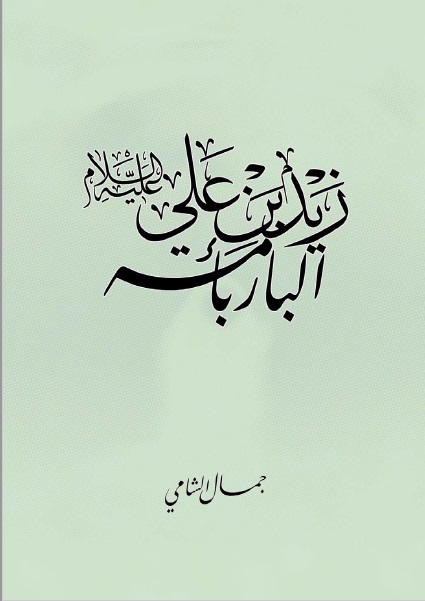 زَيْدُ بْنُ عَلِي عَلَيْهِ السَّلَام
البار بأمته
جمال الشامي